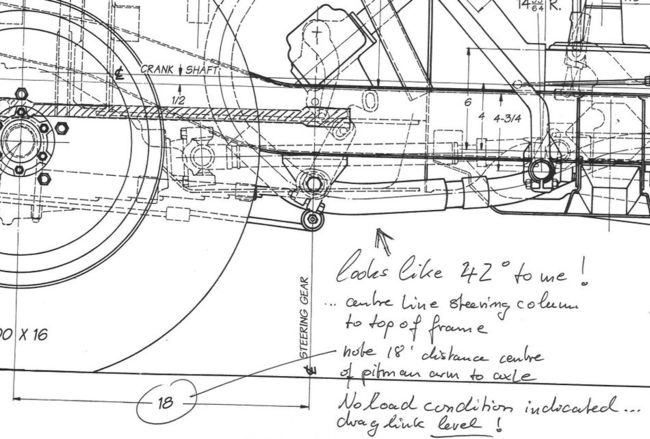 14 53/64 R.
℄ CRANK SHAFT
1/2
6
4
4-3/4
looks like 42° to me !
... centre line steering column
to top of frame
00 X 16
note 18' distance centre
of pitman arm to axle
℄ STEERING GEAR
18
No load condition indicated...
drag link level !